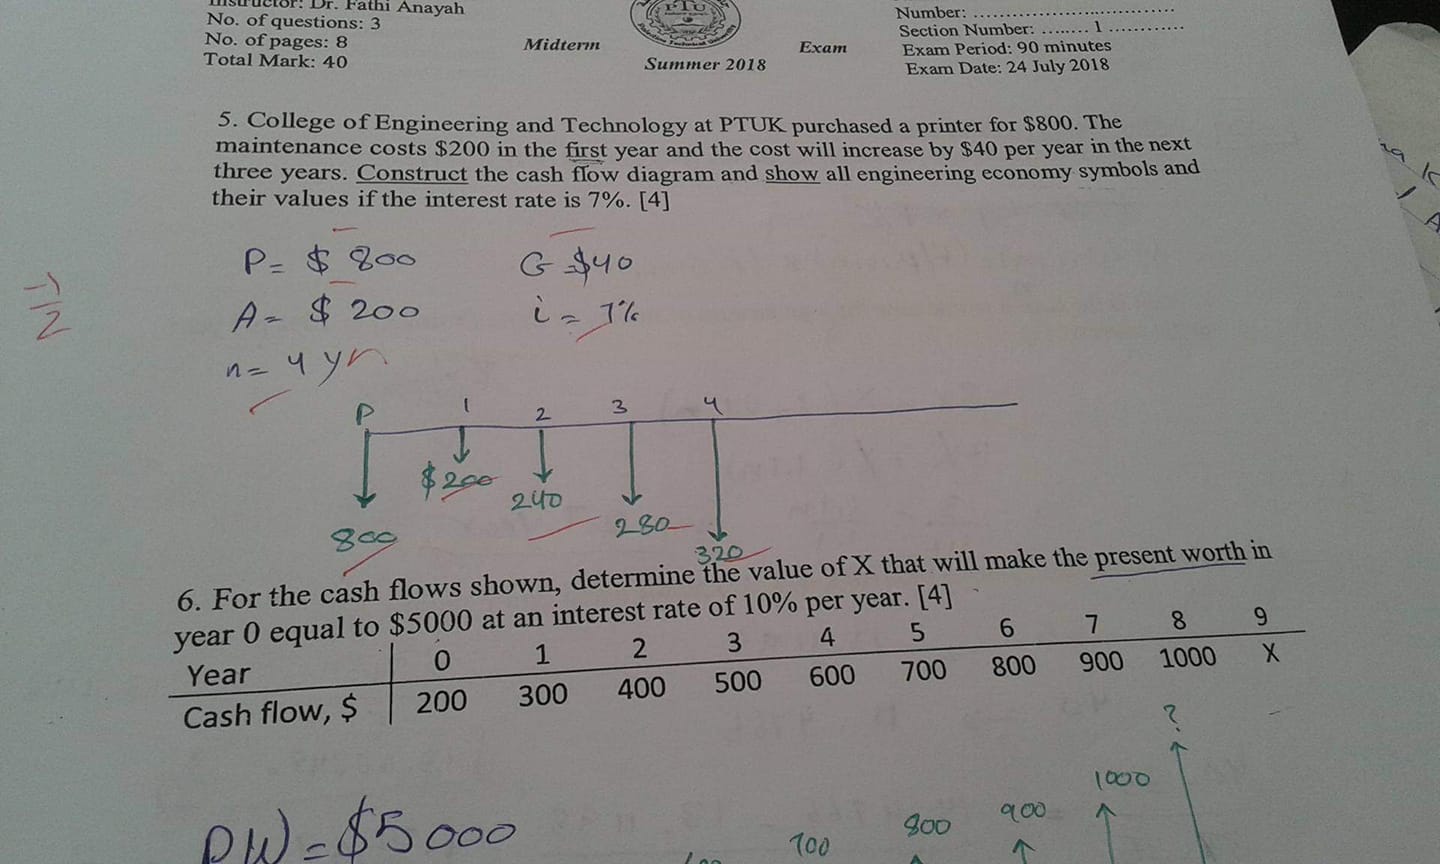 Instructor: Dr. Fathi Anayah
No. of questions: 3
No. of pages: 8
Total Mark: 40
Midterm
PTU
Exam
Summer 2018
Number: ................................
Section Number: ........ 1 ............
Exam Period: 90 minutes
Exam Date: 24 July 2018
5. College of Engineering and Technology at PTUK purchased a printer for $800. The
maintenance costs $200 in the first year and the cost will increase by $40 per year in the next
three years. Construct the cash flow diagram and show all engineering economy symbols and
their values if the interest rate is 7%. [4]
P= $ 800
G=$40
A= $ 200
i = 7%
n= 4 yr
-1/2
P 1 2 3 4
$200
240
280
800
320
6. For the cash flows shown, determine the value of X that will make the present worth in
year 0 equal to $5000 at an interest rate of 10% per year. [4]
Year 0 1 2 3 4 5 6 7 8 9
Cash flow, $ 200 300 400 500 600 700 800 900 1000 X
?
1000
900
800
700
PW=$5000